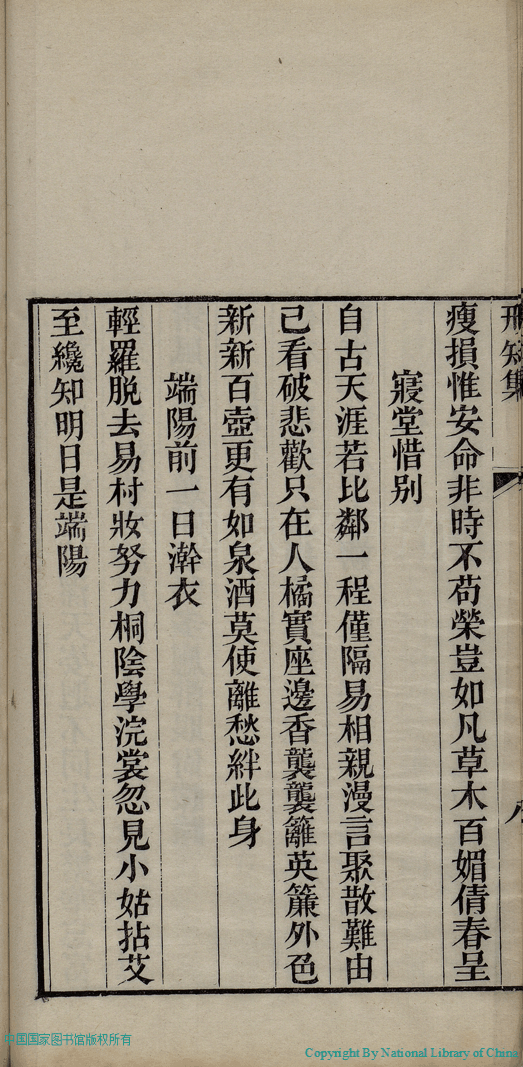 瘦損惟安命非時不苟榮豈如凡草木百媚倩春呈
寢堂惜别
自古天涯若比鄰一程僅隔易相親漫言聚散難由
己看破悲歡只在人橘實座邊香襲襲籬英簾外色
新新百壺更有如泉酒莫使離愁絆此身
端陽前一日澣衣
輕羅脱去易村妝努力桐陰學浣裳忽見小姑拈艾
至纔知明日是端陽
中国国家图书馆版权所有
Copyright By National Library of China